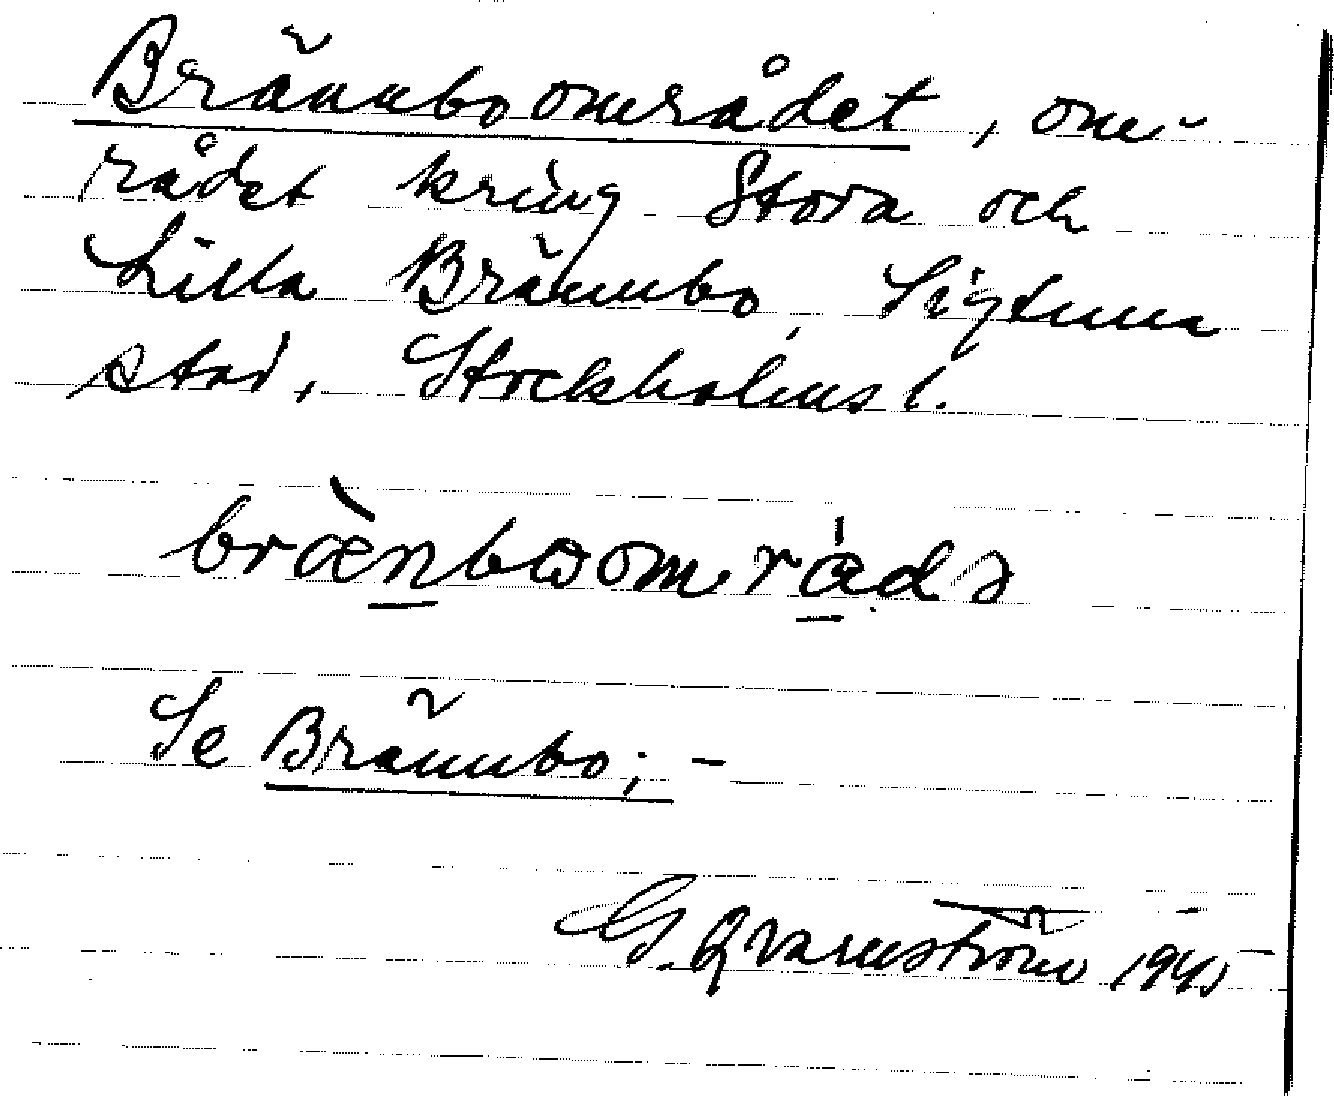 Brännboområdet, om-
rådet kring Stora och
Lilla Brännbo, Sigtuna
stad, Stockholms l.
bræ̀nbωområdə
Se Brännbo; -
G. Qvarnström 1945